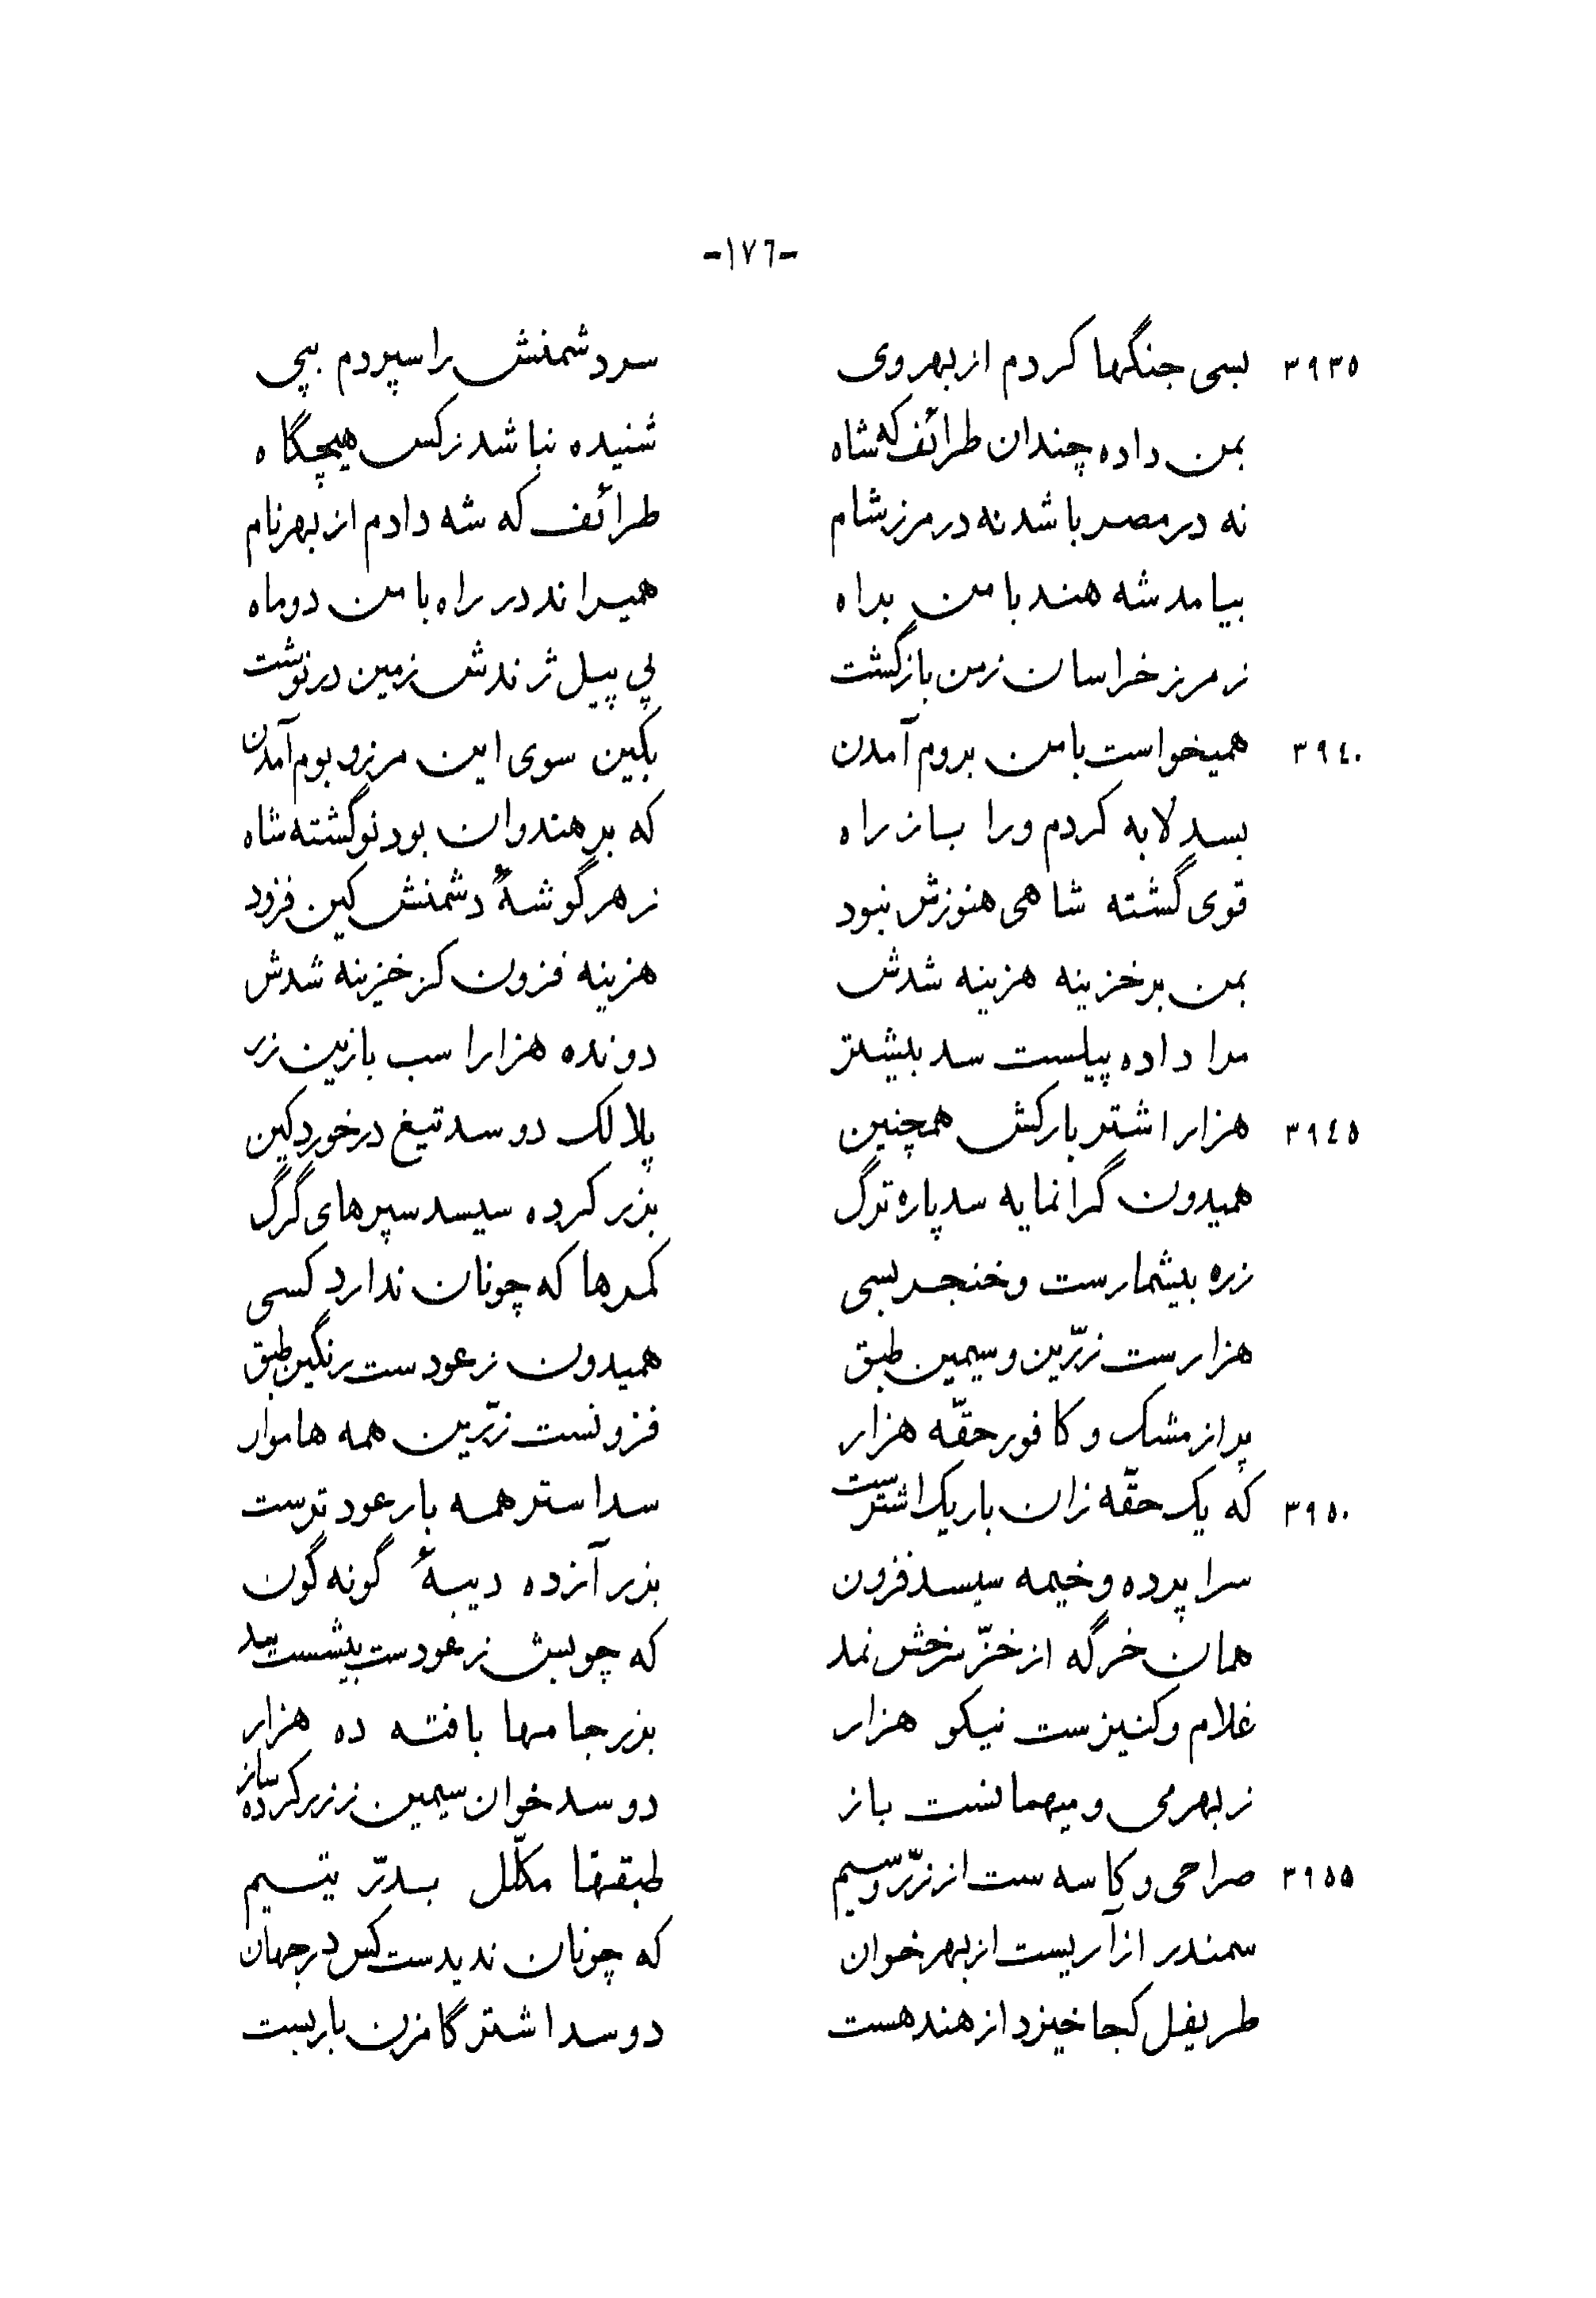 -١٧٦-
٣٩٣٥ بسی جنگها کردم از بهر وی سر دشمنش را سپردم بپی
بمن داده چندان طرائف که شاه شنیده نباشد ز کس هیچگاه
نه در مصر باشد نه در مرز شام طرائف که شه دادم از بهر نام
بیامد شه هند با من براه همیراند در راه با من دو ماه
ز مرز خراسان ز من بازگشت پی پیل ژندش زمین درنوشت
٣٩٤٠ همیخواست با من بروم آمدن بکین سوی این مرز و بوم آمدن
بسد لابه کردم ورا باز راه که بر هندوان بود نو گشته شاه
قوی گشته شاهی هنوزش نبود ز هر گوشهٔ دشمنش کین فزود
بمن بر خزینه هزینه شدش هزینه فزون کز خزینه شدش
مرا داده پیلست سد بیشتر دونده هزار اسب با زین زر
٣٩٤٥ هزار اشتر بارکش همچنین پلالک دو سد تیغ درخورد کین
همیدون گرانمایه سد پاره ترگ بزر کرده سیسد سپرهای گرگ
زره بیشمارست و خنجر بسی کمرها که چونان ندارد کسی
هزارست زرّین و سیمین طبق همیدون ز عودست رنگین طبق
پر از مشک و کافور حقّه هزار فزونست زرّین همه هاموار
٣٩٥٠ که یک حقّه زان بار یک اشترست سد استر همه بار عود ترست
سراپرده و خیمه سیسد فزون بزر آزده دیبهٔ گونه گون
همان خرگه از خزّ سرخش نمد که چوبش ز عودست بیشست سد
غلام و کنیزست نیکو هزار بزر جامها بافته ده هزار
ز بهر می و میهمانست باز دو سد خوان سیمین ز زر کرده ساز
٣٩٥٥ صراحی و کاسه ست از زرّ و سیم طبقها مکلّل بدرّ یتیم
سمندر از آریست از بهر خوان که چونان ندیدست کس در جهان
طریفل کجا خیزد از هند هست دو سد اشتر گامزن بار بست